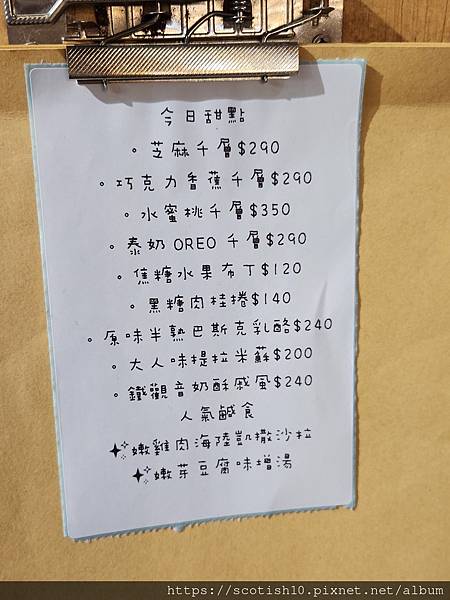 今日甜點
。芝麻千層$290
。巧克力香蕉千層$290
。水蜜桃千層$350
。泰奶OREO千層$290
。焦糖水果布丁$120
。黑糖肉桂捲$140
。原味半熟巴斯克乳酪$240
。大人味提拉米蘇$200
。鐵觀音奶酥戚風$240
人氣鹹食
嫩雞肉海陸凱撒沙拉
嫩芽豆腐味增湯
https://scotish10.pixnet.net/album